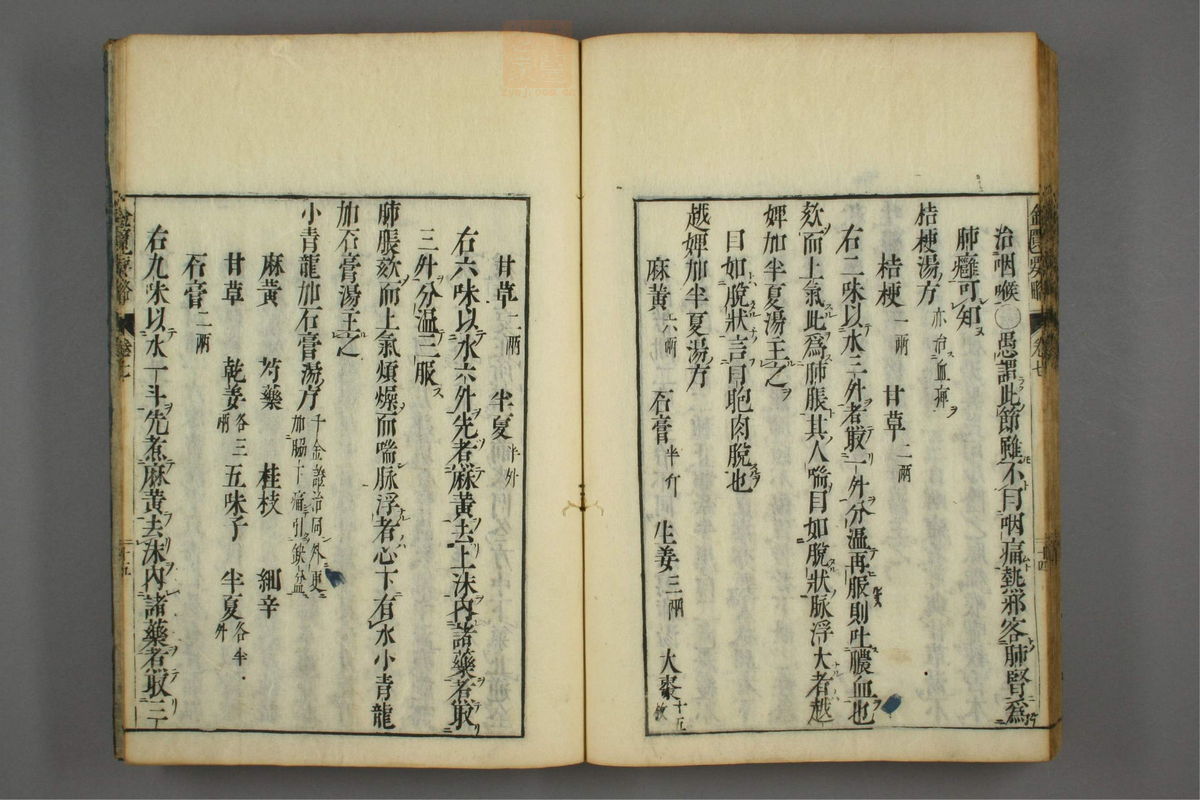 治咽喉○愚謂此節雖不曰咽痛熱邪客肺腎爲
肺癰可知
桔梗湯方 亦治血痺
桔梗一兩 甘草二兩
右二味以水三升煮取一升分溫再服則吐膿血也
欬而上氣此爲肺脹其人喘目如脫狀脉浮大者越
婢加半夏湯主之
目如脫狀言目胞肉脫也
越婢加半夏湯方
麻黃六兩 石膏半斤 生姜三兩 大棗十五枚
金匱要略 卷七 十四
甘草二兩 半夏半升
右六味以水六升先煮麻黃去上沫內諸藥煮取
三升分溫三服
肺脹欬而上氣煩燥而喘脉浮者心下有水小青龍
加石膏湯主之
小青龍加石膏湯方 千金證治同外更加脇下痛引缺盆
麻黃 芍藥 桂枝 細辛
甘草 乾姜各三兩 五味子 半夏各半升
石膏二兩
右九味以水一斗先煮麻黃去沫內諸藥煮取三
金匱要略 卷七 十五